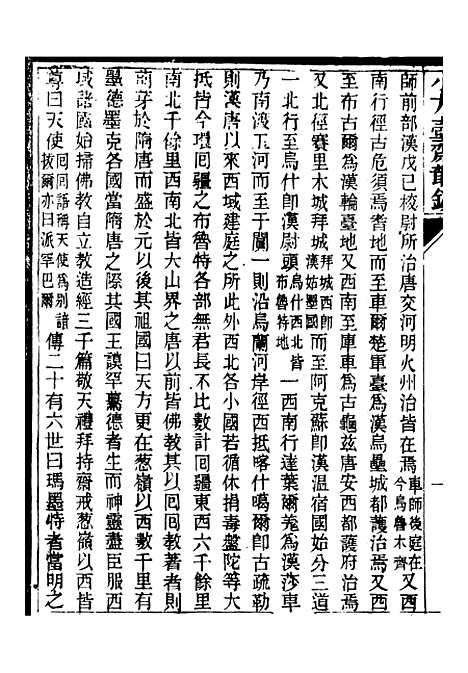 小方壺齋輿地叢鈔
一
師前部漢戊已校尉所治唐交河明火州治皆在焉車師後庭在今烏魯木齊又西
南行徑古危須焉耆而至車爾楚軍臺爲漢烏壘城都護治焉
至布古爾爲漢輪臺地又西南至庫車爲古龜茲唐安西都護府治焉
又北徑賽里木城拜城拜城西卽漢姑墨國而至阿克蘇卽漢溫宿國始分三道
一北行至烏什卽漢尉頭烏什西北皆布魯特地一西南行達葉爾羌爲漢莎車
乃南渡玉河而至于闐一則沿烏蘭河岸徑西抵喀什噶爾卽古疏勒
則漢唐以來西域建庭之所此外西北各小國若循休捐毒盤陀等大
抵皆今環囘疆之布魯特各部無君長不以比數計囘疆東西六千餘里
南北千餘里西南北皆大山界之唐以前皆佛教其以囘教易佛教則
萌芽於隋唐而大盛於元以後其祖國曰天方更在葱嶺以西數千里有
墨德墨克各國當隋唐之際其國王謨罕驀德者生而神靈盡臣服西
域諸國始掃佛教自立教造經三千篇敬天禮拜持齋戒葱嶺以西皆
尊曰天使囘囘語稱天使爲別諳拔爾亦曰派罕巴爾傳二十有六世曰瑪墨特者當明之